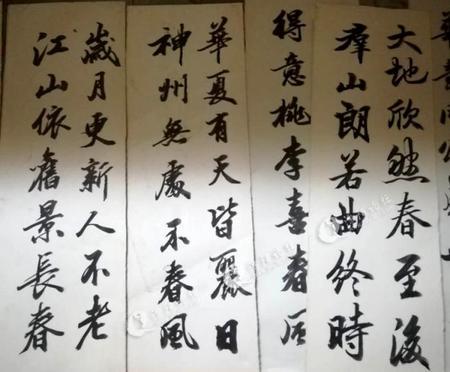 大地欣然春至後
羣山朗若曲終時
得意桃李喜春
華夏有天皆麗日
神州無處不春風
歲月更新人不老
江山依舊景長春